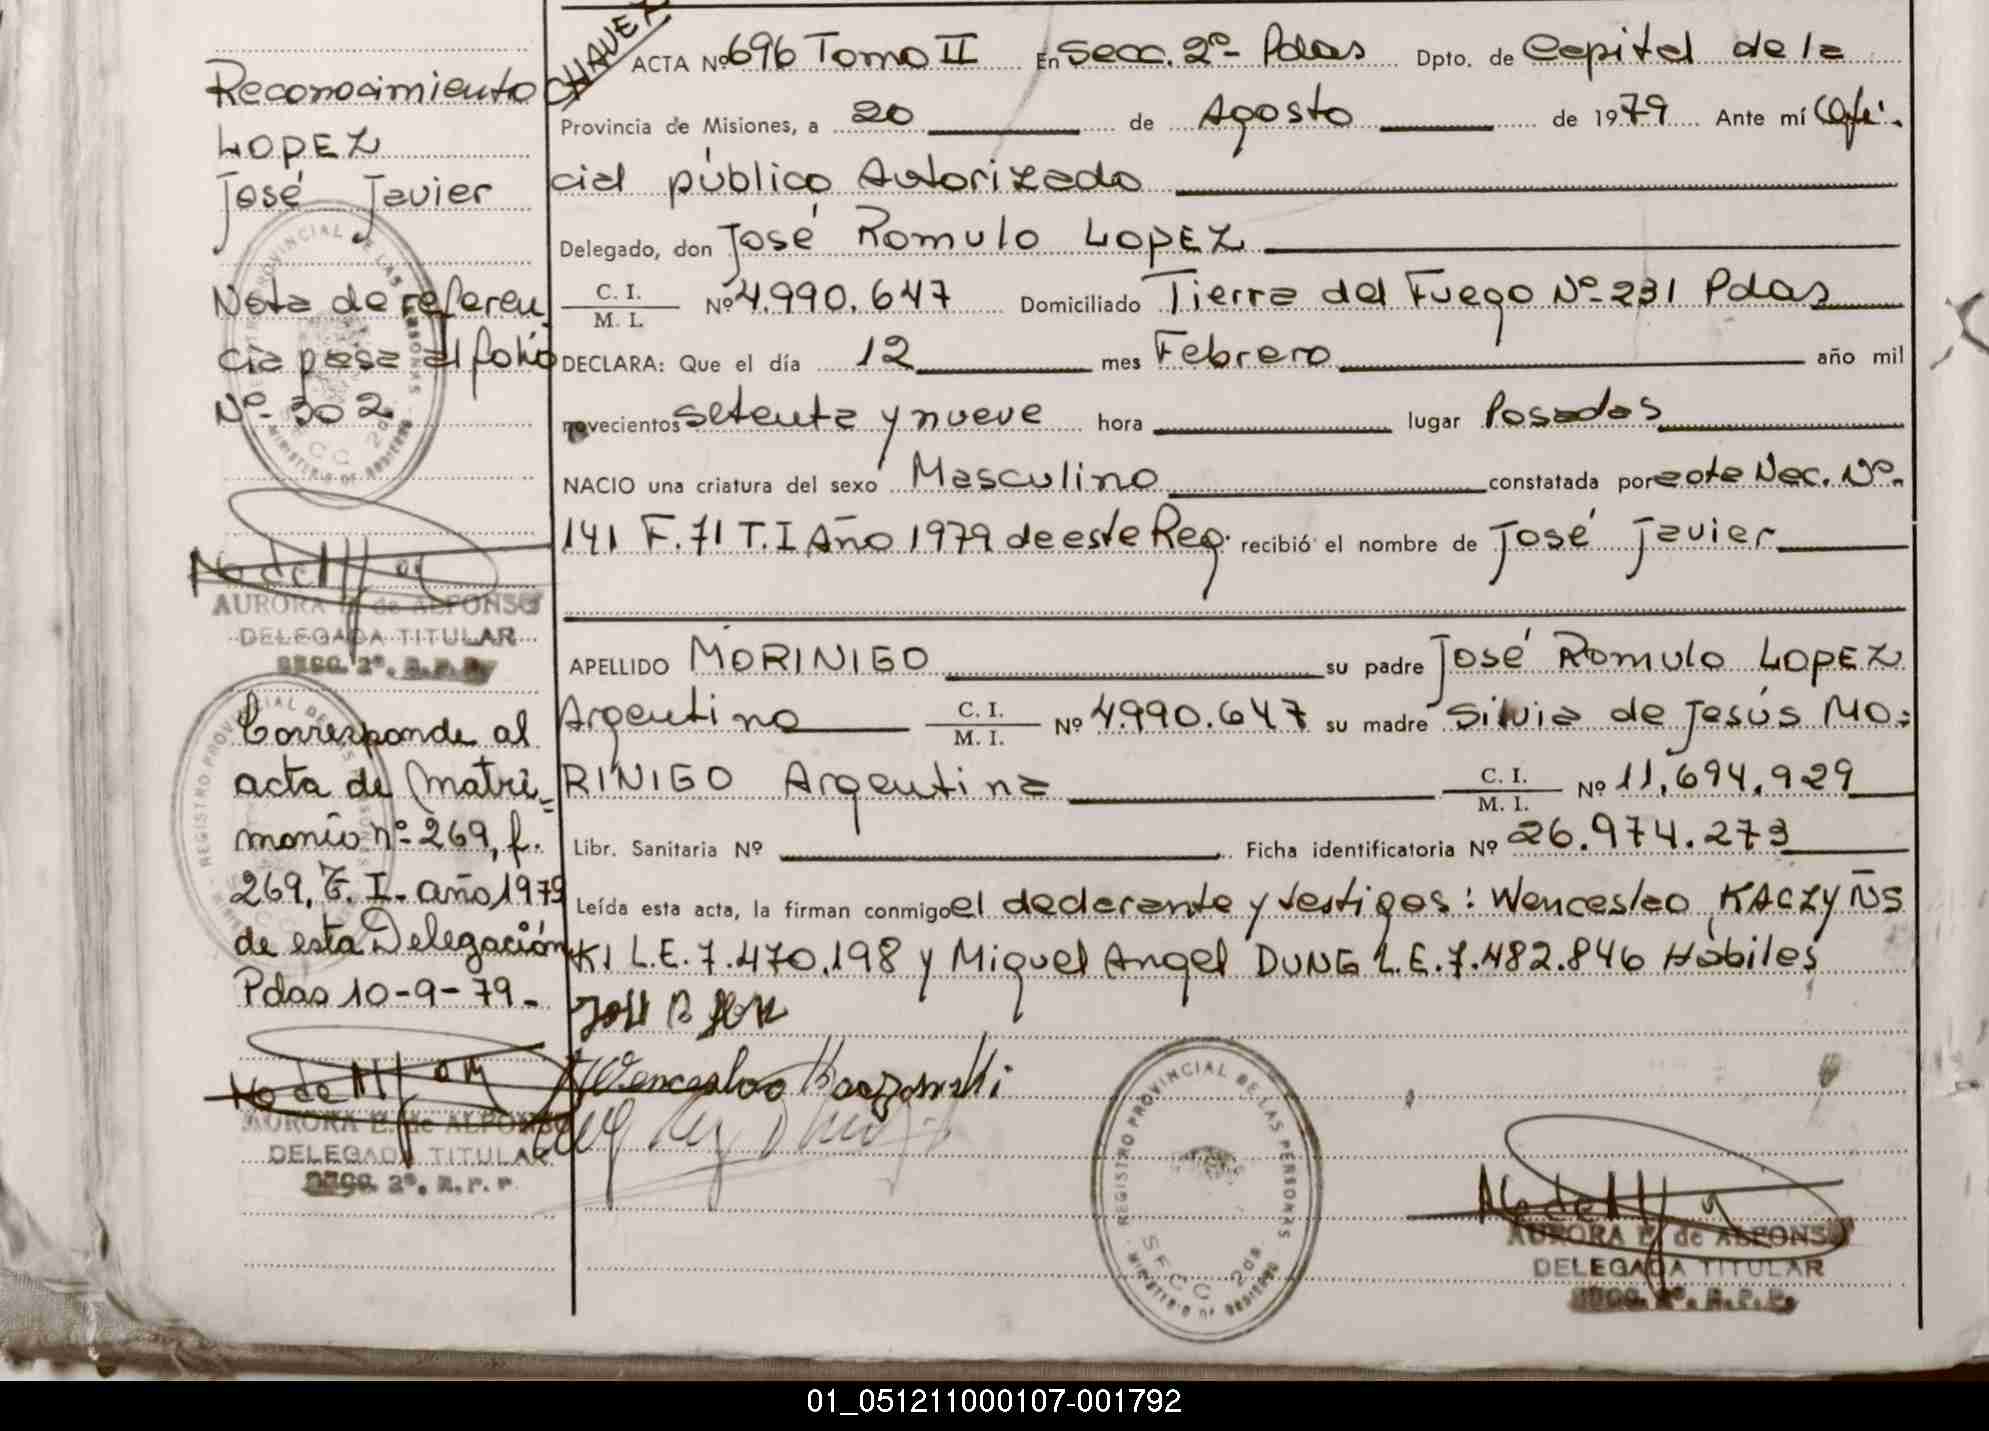 Reconocimiento
LOPEZ
José Javier
Nota de referen
cia pasa al folio
Nº- 302.
AURORA E. de ALFONSO
DELEGADA TITULAR
SECC. 2ª. R.P.P.
Corresponde al
acta de Matri=
monio nº- 269, f.
269, T. I- año 1979
de esta Delegación
Pdas 10-9-79-
AURORA E. de ALFONSO
DELEGADA TITULAR
SECC. 2ª. R.P.P
CHAVEZ
ACTA Nº 696 Tomo II En Secc. 2º- Pdas Dpto. de Capital de la
Provincia de Misiones, a 20 de Agosto de 1979 Ante mí Ofi-
cial público Autorizado
Delegado, don José Romulo LOPEZ
C. I. / M. I. Nº 4.990.647 Domiciliado Tierra del Fuego Nº-231 Pdas
DECLARA: Que el día 12 mes Febrero año mil
novecientos setenta y nueve hora lugar Posadas
NACIO una criatura del sexo Masculino constatada por acta Nac. Nº.
141 F.71 T.I Año 1979 de este Reg. recibió el nombre de José Javier
APELLIDO MORINIGO su padre José Romulo LOPEZ
Argentino C. I. / M. I. Nº 4.990.647 su madre Silvia de Jesús MO=
RINIGO Argentina C. I. / M. I. Nº 11.694.929
Libr. Sanitaria Nº Ficha identificatoria Nº 26.974.273
Leída esta acta, la firman conmigo el declarante y testigos: Wenceslao KACZYÑS
KI L.E.7.470.198 y Miguel Angel DUNG L.E.7.482.846 Hábiles
Wenceslao
REGISTRO PROVINCIAL DE LAS PERSONAS
SECC 2da.
MINISTERIO DE GOBIERNO
AURORA E. de ALFONSO
DELEGADA TITULAR
SECC. 2ª. R.P.P.
01_051211000107-001792